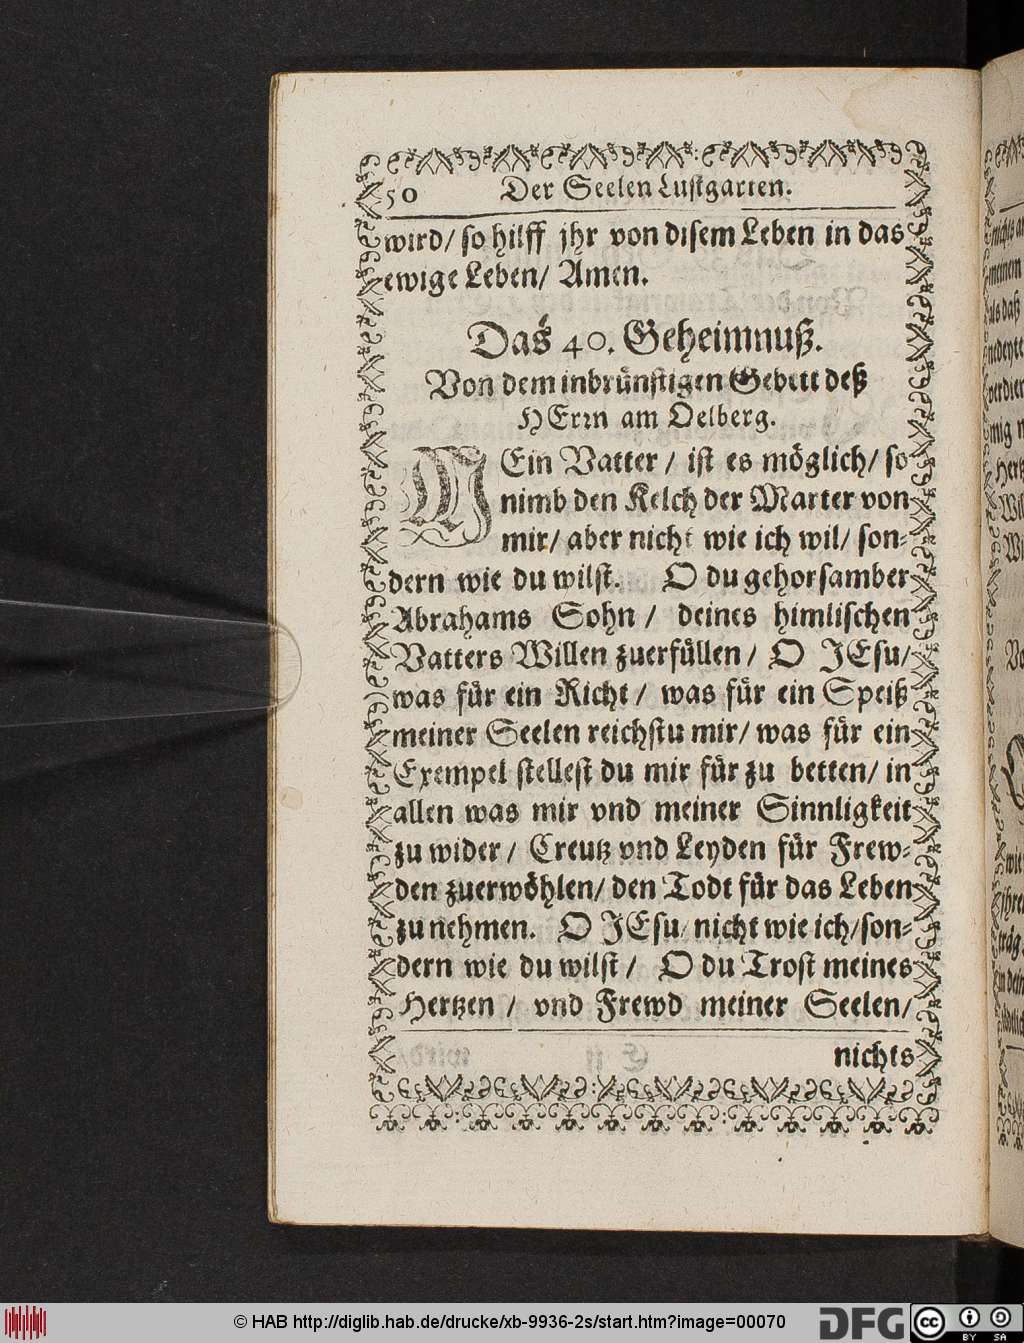 50 Der Seelen Lustgarten.
wird/ so hilff jhr von disem Leben in das
ewige Leben/ Amen.
Das 40. Geheimnuß.
Von dem inbrünstigen Gebett deß
HErrn am Oelberg.
MEin Vatter / ist es möglich/ so
nimb den Kelch der Marter von
mir/ aber nicht wie ich wil/ son-
dern wie du wilst. O du gehorsamber
Abrahams Sohn / deines himlischen
Vatters Willen zuerfüllen / O JEsu/
was für ein Richt / was für ein Speiß
meiner Seelen reichstu mir/ was für ein
Exempel stellest du mir für zu betten/ in
allen was mir vnd meiner Sinnligkeit
zu wider / Creutz vnd Leyden für Frew-
den zuerwöhlen/ den Todt für das Leben
zu nehmen. O JEsu/ nicht wie ich/son-
dern wie du wilst / O du Trost meines
Hertzen / vnd Frewd meiner Seelen/
nichts
© HAB http://diglib.hab.de/drucke/xb-9936-2s/start.htm?image=00070
DFG
CC BY SA